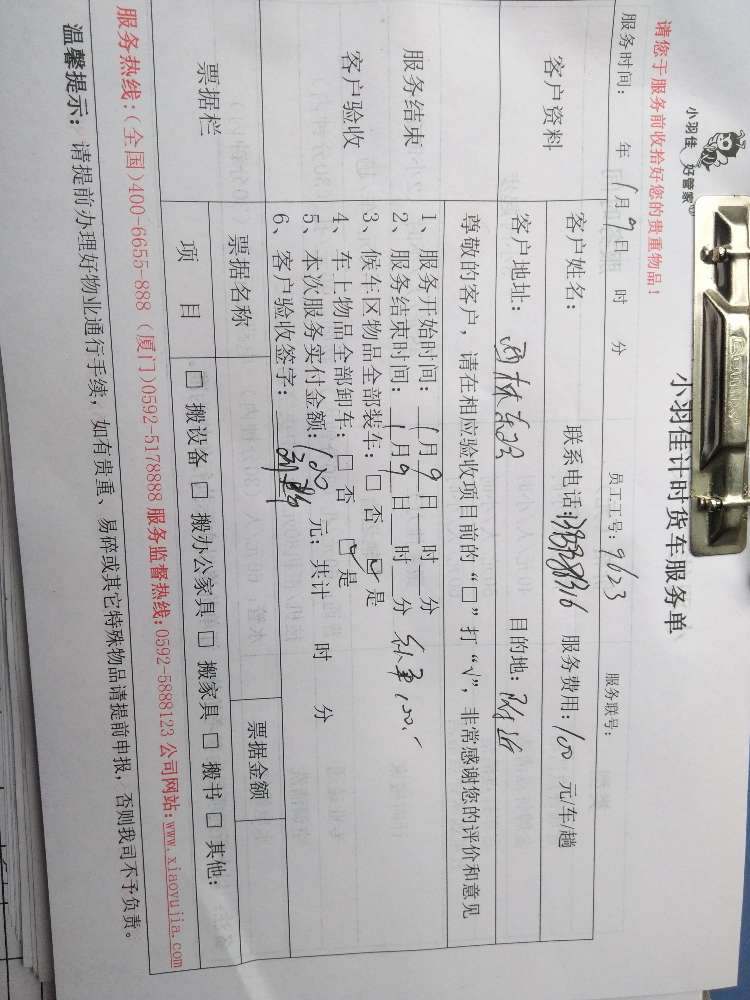 小羽佳 好管家
小羽佳计时货车服务单
请您于服务前收拾好您的贵重物品！
服务时间： 年 1月9日 时 分 员工工号：9623 服务联号：
客户资料
客户姓名： 联系电话： 服务费用：100 元/车/趟
客户地址：西林东 目的地：
尊敬的客户，请在相应验收项目前的“□”打“√”，非常感谢您的评价和意见
服务结束
客户验收
1、服务开始时间：1月9日 时 分
2、服务结束时间：1月9日 时 分
3、候车区物品全部装车：□ 否 ☑ 是
4、车上物品全部卸车：□ 否 ☑ 是
5、本次服务实付金额：100 元；共计 时 分
6、客户验收签字：
票据栏
票据名称 票据金额
项 目 □ 搬设备 □ 搬办公家具 □ 搬家具 □ 搬书 □ 其他：
服务热线：(全国)400-6655-888 (厦门)0592-5178888 服务监督热线：0592-5888123 公司网站：www.xiaoyujia.com
温馨提示：请提前办理好物业通行手续，如有贵重、易碎或其它特殊物品请提前申报，否则我司不予负责。